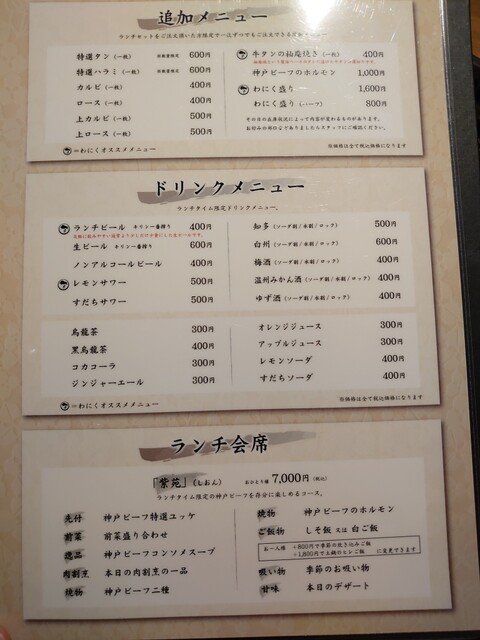 追加メニュー
ランチセットをご注文頂いた方限定で一枚ずつでもご注文できる追加メニュー
特選タン(一枚) 数量限定 600円
特選ハラミ(一枚) 数量限定 600円
カルビ(一枚) 400円
ロース(一枚) 400円
上カルビ(一枚) 500円
上ロース(一枚) 500円
=わにくオススメメニュー
牛タンの祐庵焼き(一枚) 400円
神戸ビーフのホルモン 1,000円
わにく盛り 1,600円
わにく盛り(ハーフ) 800円
その日の在庫状況によって内容が変わるものがあります。
お好みの部位などありましたらスタッフにご確認ください。
※価格は全て税込価格になります
ドリンクメニュー
ランチタイム限定ドリンクメニュー。
ランチビール キリン一番搾り 400円
生ビール キリン一番搾り 600円
ノンアルコールビール 400円
レモンサワー 500円
すだちサワー 500円
知多(ソーダ割/水割/ロック) 500円
白州(ソーダ割/水割/ロック) 600円
梅酒(ソーダ割/水割/ロック) 400円
温州みかん酒(ソーダ割/水割/ロック) 400円
ゆず酒(ソーダ割/水割/ロック) 400円
烏龍茶 300円
黒烏龍茶 400円
コカコーラ 300円
ジンジャーエール 300円
オレンジジュース 300円
アップルジュース 300円
レモンソーダ 400円
すだちソーダ 400円
=わにくオススメメニュー
※価格は全て税込価格になります
ランチ会席
「紫苑」(しおん) お一人様 7,000円(税込)
ランチタイム限定の神戸ビーフを存分に楽しめるコース。
先付 神戸ビーフ特選ユッケ
前菜 前菜盛り合わせ
逸品 神戸ビーフコンソメスープ
肉割烹 本日の肉割烹の一品
焼物 神戸ビーフ二種
焼物 神戸ビーフのホルモン
ご飯物 しそ飯 又は 白ご飯
お一人様 +800円で季節の炊き込みご飯
+1,800円で土鍋のヒレご飯 に変更できます
吸い物 季節のお吸い物
甘味 本日のデザート